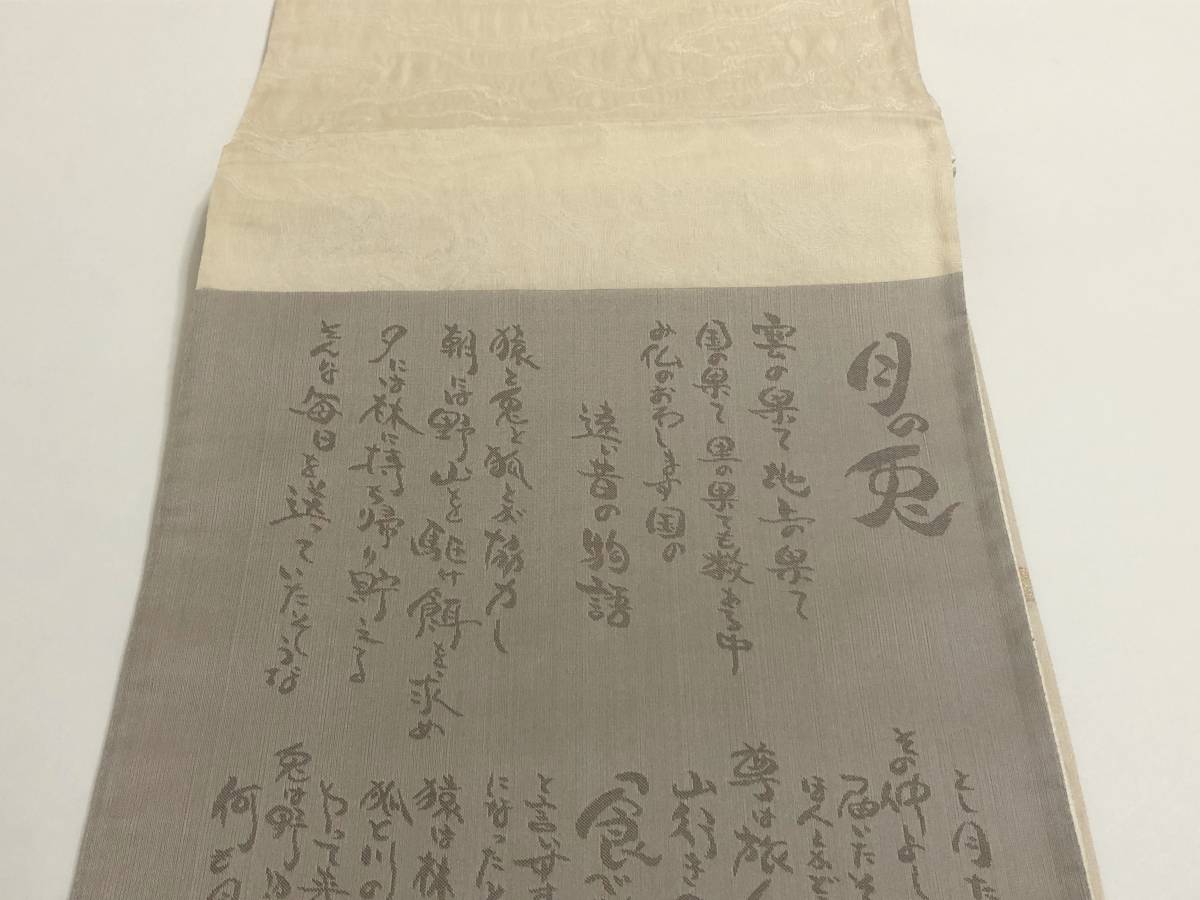 月の兎
雲の果て地上の果て
国の果て里の果ても数ある中
み仏のおわします国の
遠い昔の物語
猿と兎と狐とが協力し
朝には野山を駆け餌を求め
夕には林に持ち帰り貯える
そんな毎日を送っていたそうな
とし月た
その仲よし
届いたそ
ほんとかど
尊は旅人
山行きの
「食べ
と言います
になったと
猿は林
狐と川の
やって来
兎は野山
何も